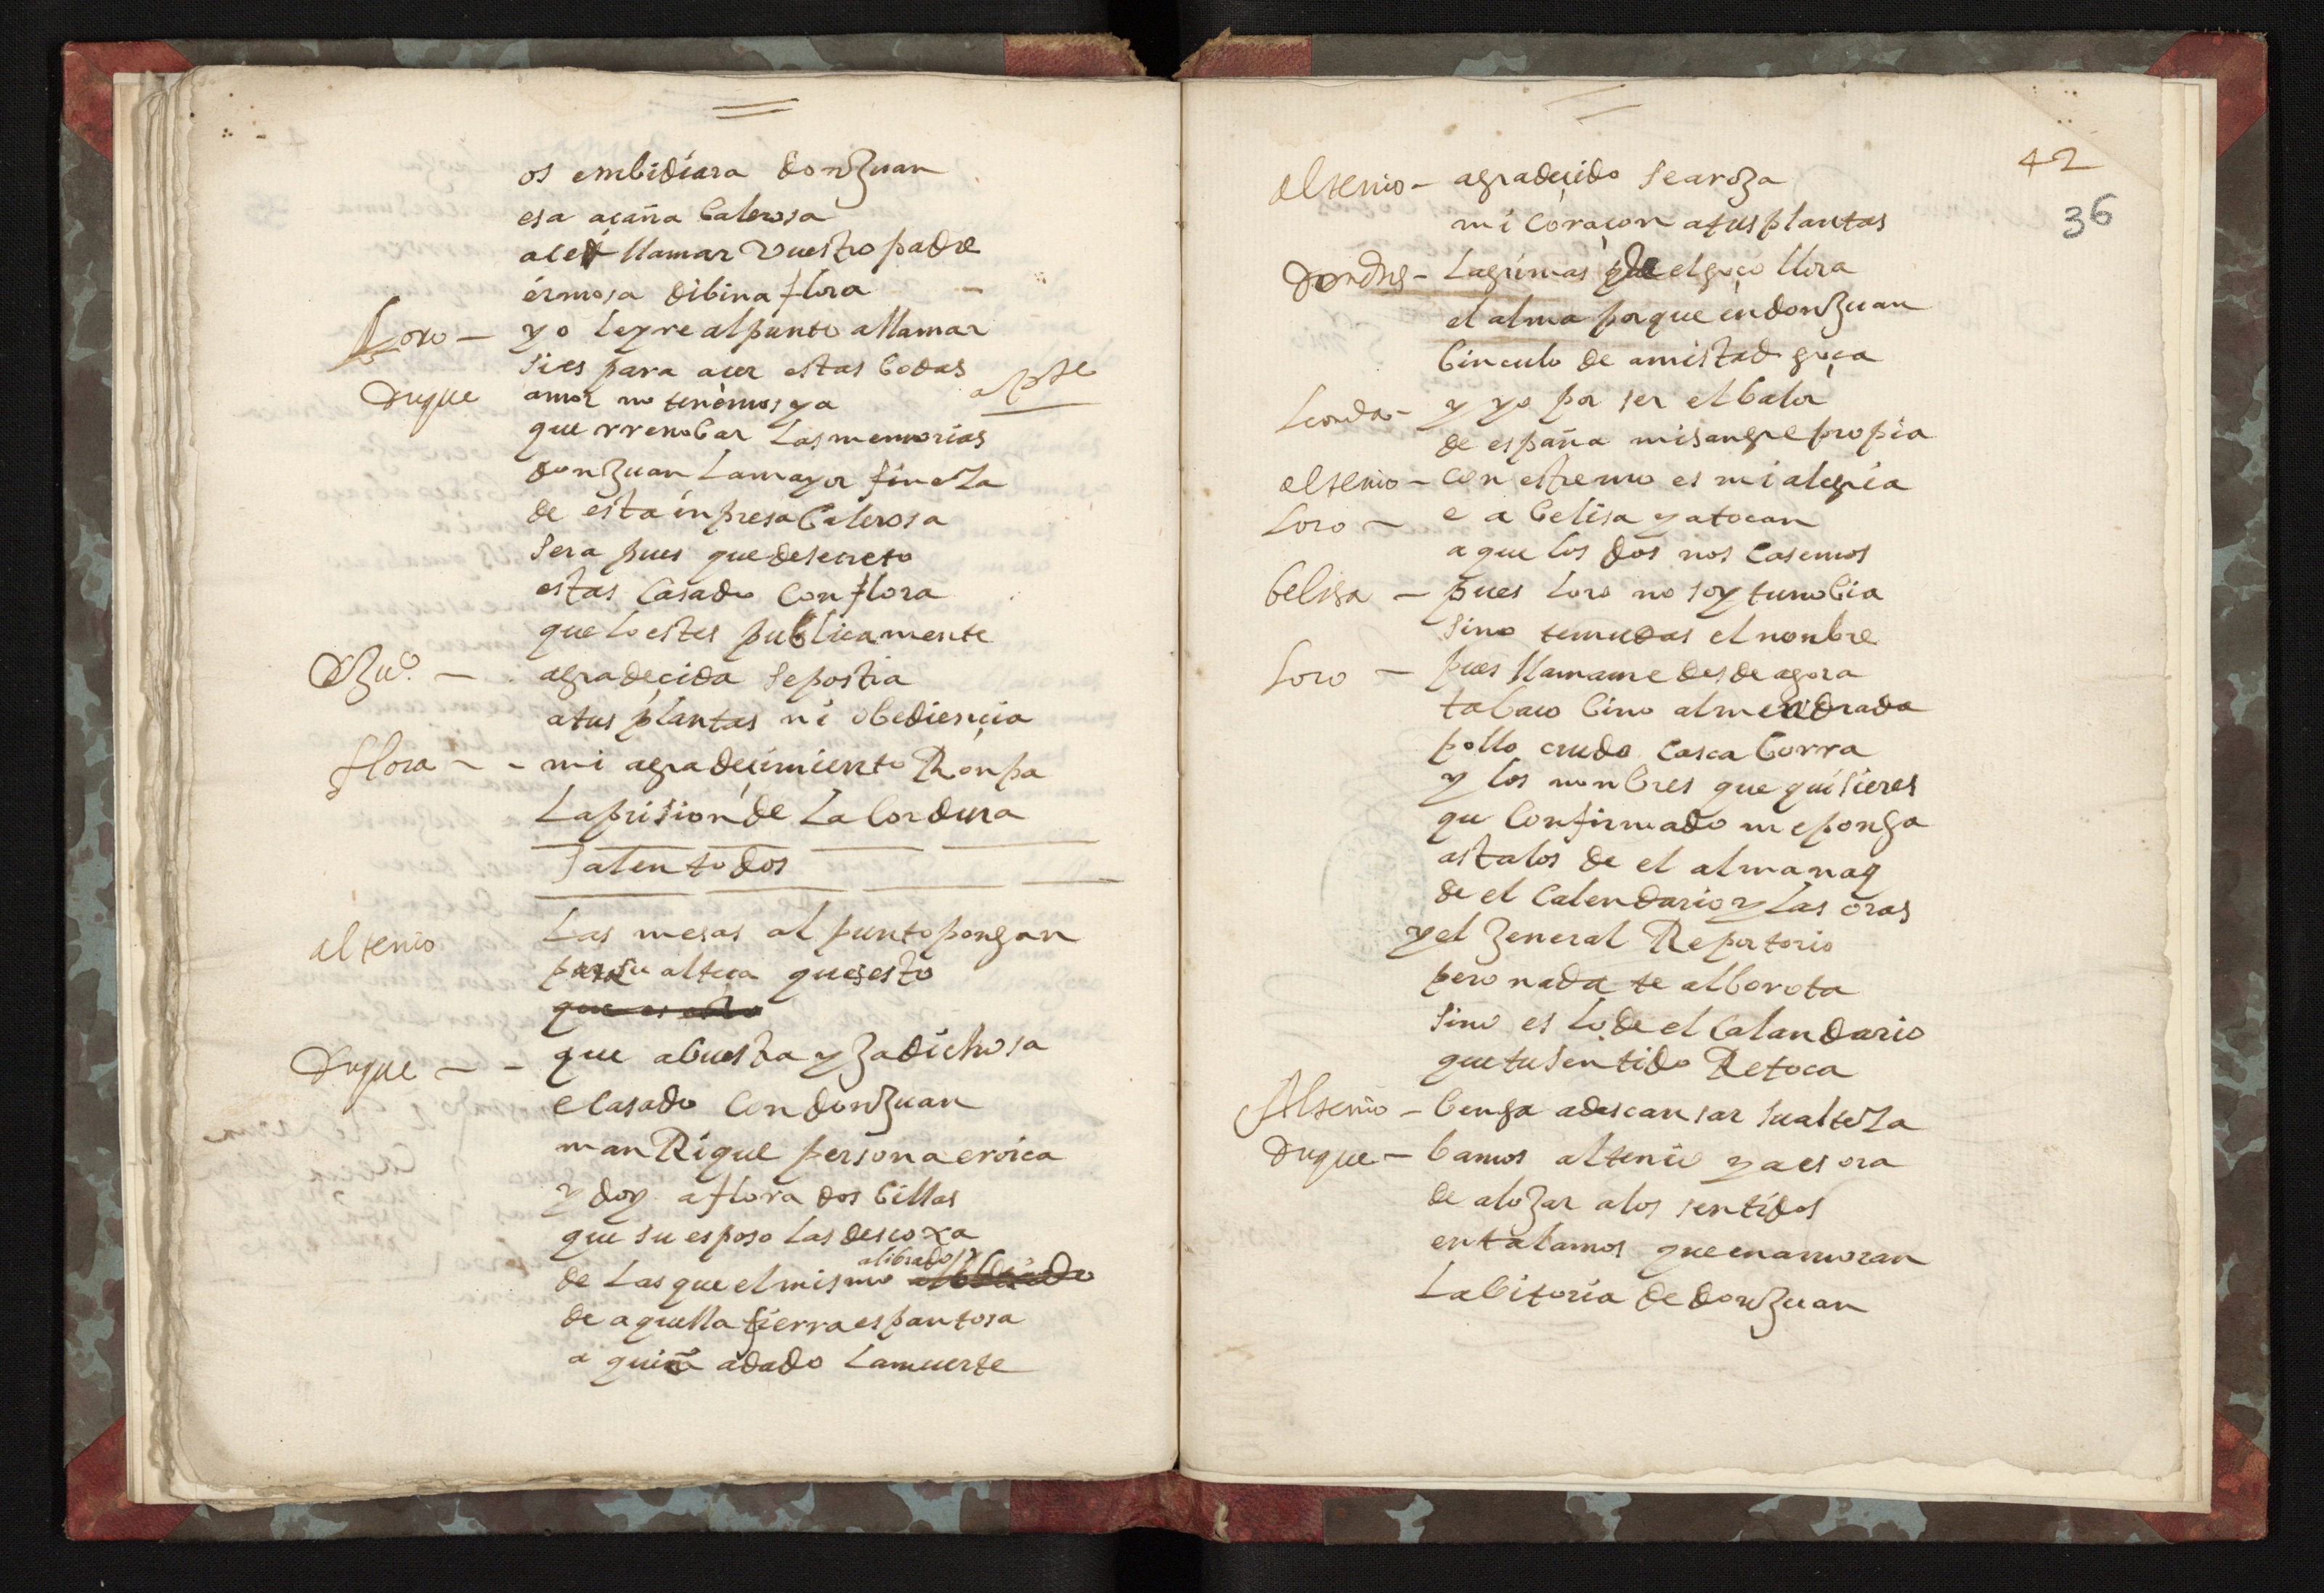 os embidiara don Juan
esa açaña balerosa
aced llamar vuestro padre
ermosa dibina flora
Loro — yo le yre al punto a llamar
si es para açer estas bodas
Duque amor no tenemos ya apte
que rrenobar las memorias
don Juan la mayor fineza
de esta inpresa balerosa
sera pues que de secreto
estas casado con flora
que lo estes publicamente
Dju.º — agradeçida se postra
a tus plantas mi obediençia
flora — mi agradeçimiento Ronpa
la prision de la cordura
salen todos
altenio Las mesas al punto pongan
para su alteça que es esto
Duque — que a buestra yja dichosa
e casado con don Juan
manRique persona eroica
y doy a flora dos billas
que su esposo las descoxa
de las que el mismo a librado
de aquella fierra espantosa
a quien a dado la muerte
42
36
altenio — agradeçido se aroja
mi coraçon a tus plantas
Lagrimas de el goço llora
el alma porque en don Juan
binculo de amistad goça
Leonda — y yo por ser el balor
de españa mi sangre propia
altenio — con estremo es mi alegria
Loro — e a belisa ya tocan
a que los dos nos casemos
belisa — pues loro no soy tu nobia
sino te mudas el nonbre
Loro — pues llamame desde agora
tabaco bino almendrada
pollo crudo casca borra
y los nonbres que quisieres
qu confirmado me ponga
asta los de el almanaq
de el calendario y las oras
y el Jeneral Repertorio
pero nada te alborota
sino es lo de el calandario
que tu sentido Retoca
Altenio — benga a descansar su alteza
Duque — bamos altenio ya es ora
de alojar a los sentidos
en talamos que enamoran
La bitoria de don Juan